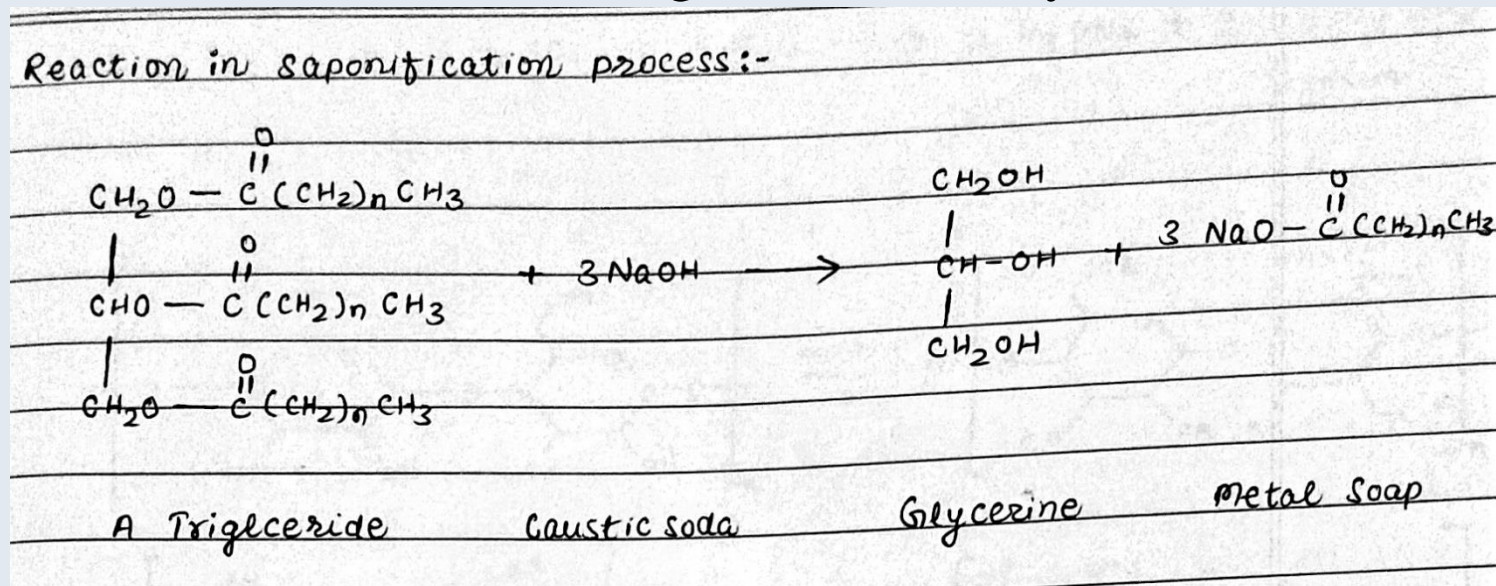 Reaction in saponification process:-
O
||
CH2O — C (CH2)n CH3
|
O
||
CHO — C (CH2)n CH3
|
O
||
CH2O — C (CH2)n CH3
+ 3 NaOH ⟶
CH2OH
|
CH-OH
|
CH2OH
+
O
||
3 NaO - C (CH2)n CH3
A Triglceride Caustic soda Glycerine Metal Soap